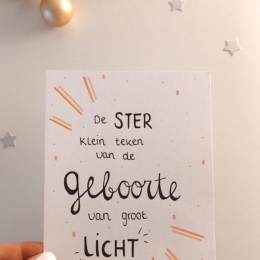 De STER
Klein teken
van de
geboorte
van groot
LICHT